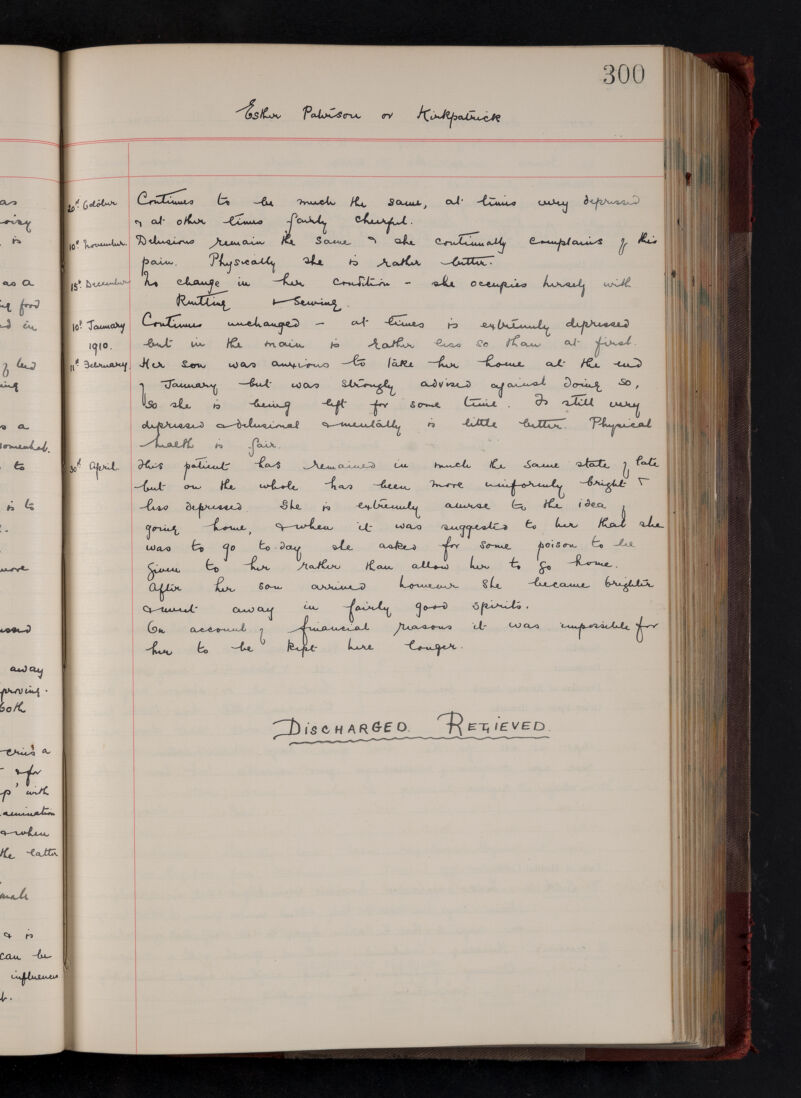 300
Esther Paterson or Kirkpatrick
20th October Continues to be much the same, at times very depressed
& at other times fairly cheerful.
10th November. Delusions remain the same & she continually complains of this
pain. Physically she is rather better.
15th December No change in her condition - she occupies herself with
Knitting & Sewing.
10th January Continues unchanged - at times is extremely depressed
1910. but in the main is rather less so than at first.
11th February. Her son was anxious to take her home at the end
of January but was strongly advised against doing so,
so she is being left for some time. Is still very
depressed & delusional & mentally is little better. Physical
health is fair.
30th April. This patient has remained in much the same state of late
but on the whole has been more uniformly bright &
less depressed. She is extremely averse to the idea of
going home, & when it was suggested to her that she
was to go to-day she asked for some poison to be
given to her rather than allow her to go home.
After her son arrived however she became brighter
& went away in fairly good spirits.
On account of financial reasons it was impossible for
her to be kept here longer.
DISCHARGED. RELIEVED.
as
noisy
is
as a
food
in
of bed
a
somewhat.
to
is to
more
away
proving.
both
cries a
& for
up' with
examination
& when
the latter
& is
can be
influences